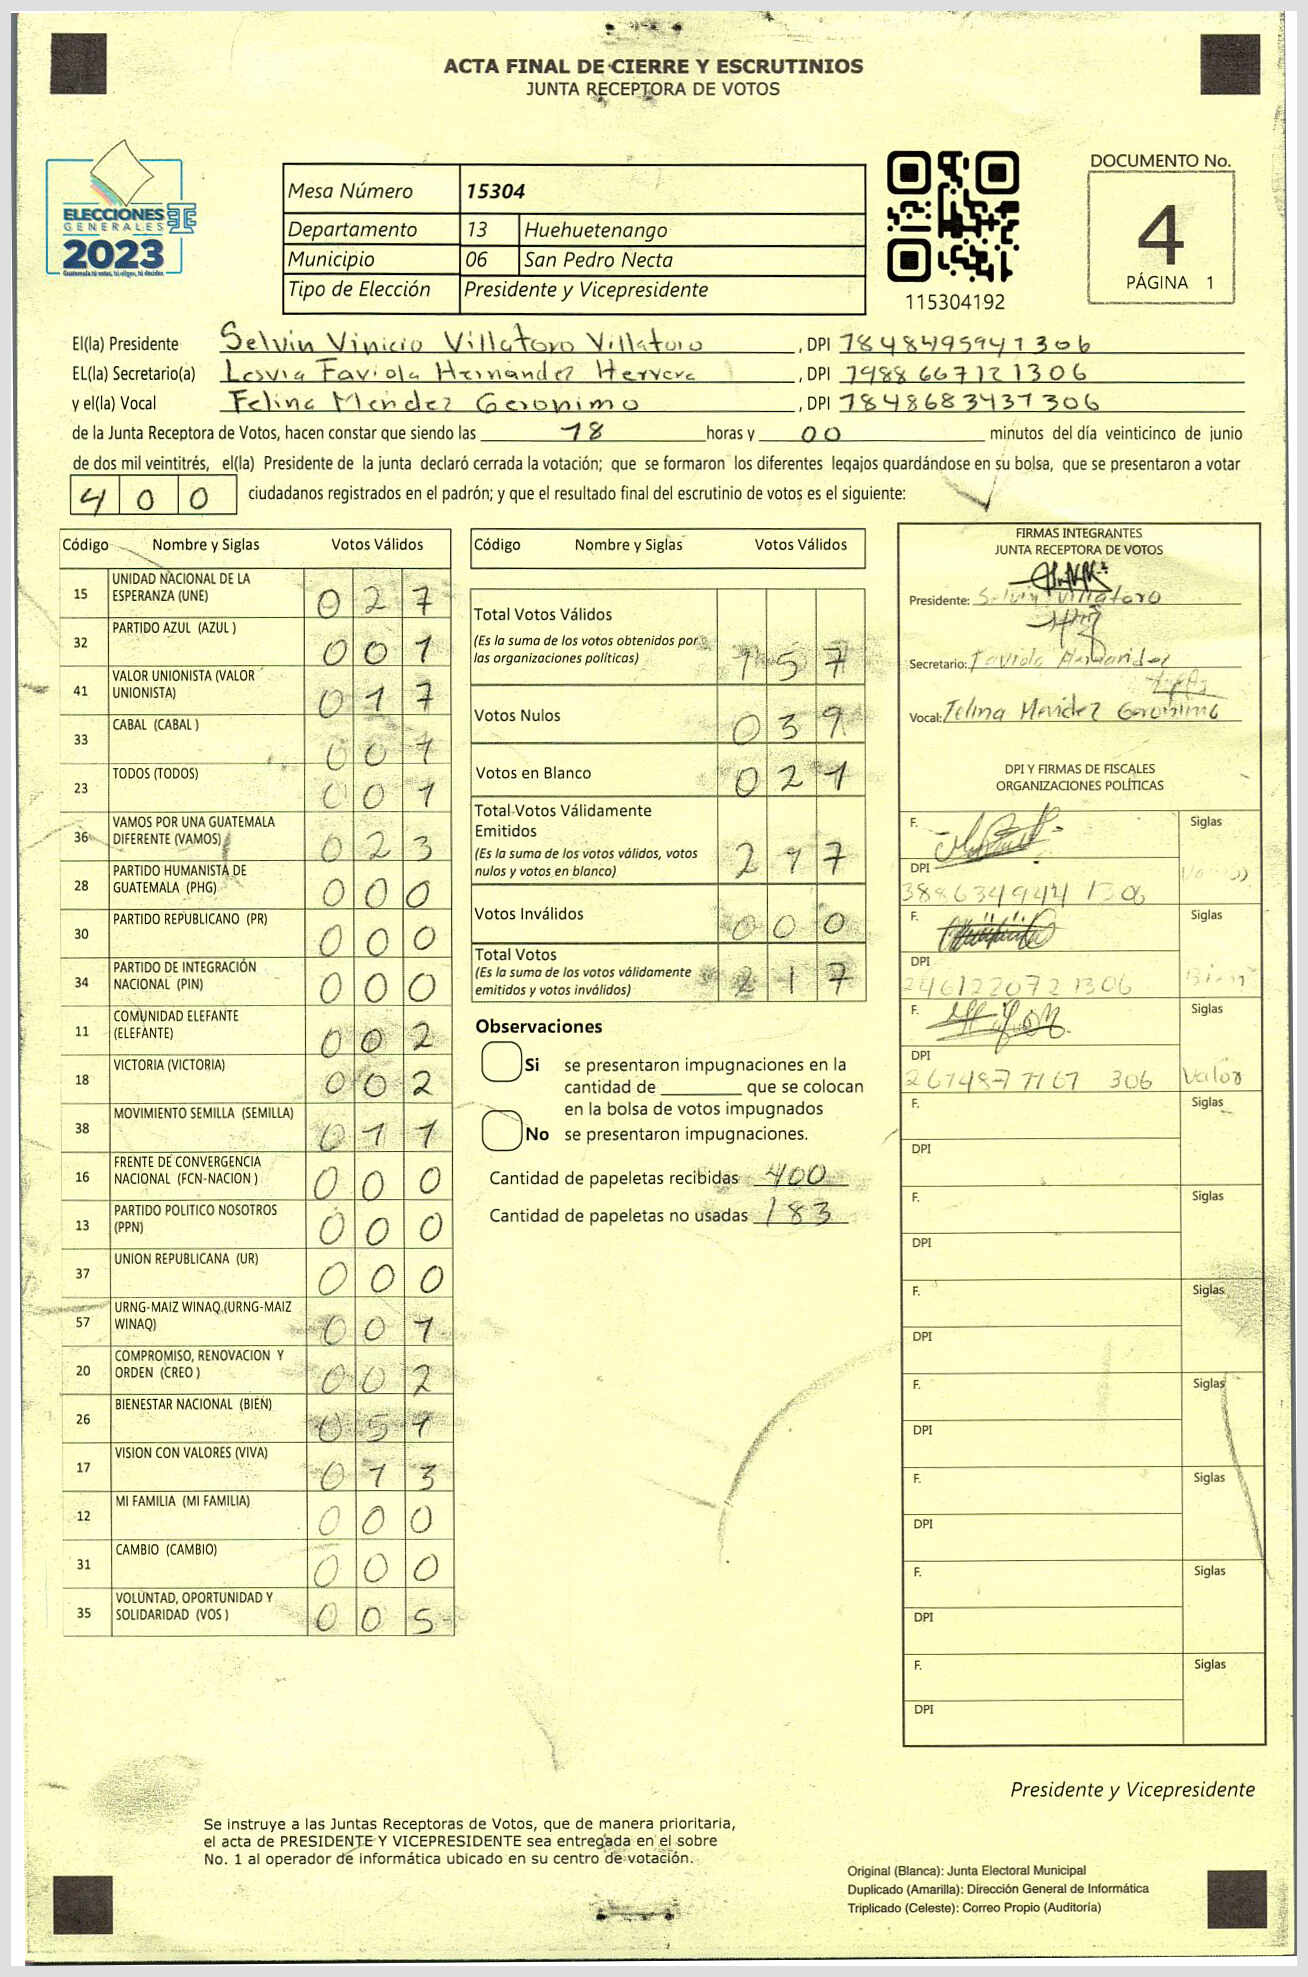 ACTA FINAL DE CIERRE Y ESCRUTINIOS
JUNTA RECEPTORA DE VOTOS
ELECCIONES
GENERALES
2023
Guatemala tú votas, tú eliges, tú decides
Mesa Número 15304
Departamento 13 Huehuetenango
Municipio 06 San Pedro Necta
Tipo de Elección Presidente y Vicepresidente
115304192
DOCUMENTO No.
4
PÁGINA 1
El(la) Presidente Selvin Vinicio Villatoro Villatoro, DPI 7848495941306
EL(la) Secretario(a) Lesvia Faviola Hernandez Herrera, DPI 1988667121306
y el(la) Vocal Felina Mendez Geronimo, DPI 7848683431306
de la Junta Receptora de Votos, hacen constar que siendo las 18 horas y 00 minutos del día veinticinco de junio
de dos mil veintitrés, el(la) Presidente de la junta declaró cerrada la votación; que se formaron los diferentes legajos guardándose en su bolsa, que se presentaron a votar
400 ciudadanos registrados en el padrón; y que el resultado final del escrutinio de votos es el siguiente:
Código Nombre y Siglas Votos Válidos
15 UNIDAD NACIONAL DE LA ESPERANZA (UNE) 027
32 PARTIDO AZUL (AZUL ) 001
41 VALOR UNIONISTA (VALOR UNIONISTA) 017
33 CABAL (CABAL ) 001
23 TODOS (TODOS) 001
36 VAMOS POR UNA GUATEMALA DIFERENTE (VAMOS) 023
28 PARTIDO HUMANISTA DE GUATEMALA (PHG) 000
30 PARTIDO REPUBLICANO (PR) 000
34 PARTIDO DE INTEGRACIÓN NACIONAL (PIN) 000
11 COMUNIDAD ELEFANTE (ELEFANTE) 002
18 VICTORIA (VICTORIA) 002
38 MOVIMIENTO SEMILLA (SEMILLA) 011
16 FRENTE DE CONVERGENCIA NACIONAL (FCN-NACION ) 000
13 PARTIDO POLITICO NOSOTROS (PPN) 000
37 UNION REPUBLICANA (UR) 000
57 URNG-MAIZ WINAQ (URNG-MAIZ WINAQ) 001
20 COMPROMISO, RENOVACION Y ORDEN (CREO ) 002
26 BIENESTAR NACIONAL (BIEN) 051
17 VISION CON VALORES (VIVA) 013
12 MI FAMILIA (MI FAMILIA) 000
31 CAMBIO (CAMBIO) 000
35 VOLUNTAD, OPORTUNIDAD Y SOLIDARIDAD (VOS ) 005
Código Nombre y Siglas Votos Válidos
Total Votos Válidos
(Es la suma de los votos obtenidos por las organizaciones políticas) 157
Votos Nulos 039
Votos en Blanco 021
Total Votos Válidamente Emitidos
(Es la suma de los votos válidos, votos nulos y votos en blanco) 217
Votos Inválidos 000
Total Votos
(Es la suma de los votos válidamente emitidos y votos inválidos) 217
Observaciones
Si se presentaron impugnaciones en la
cantidad de ________ que se colocan
en la bolsa de votos impugnados
No se presentaron impugnaciones.
Cantidad de papeletas recibidas 400
Cantidad de papeletas no usadas 183
FIRMAS INTEGRANTES
JUNTA RECEPTORA DE VOTOS
Presidente: Selvin Villatoro
Secretario: Faviola Hernandez
Vocal: Felina Mendez Geronimo
DPI Y FIRMAS DE FISCALES
ORGANIZACIONES POLÍTICAS
F. Siglas Vamos
DPI 3886349441306
F. Siglas Bien
DPI 2461220721306
F. Siglas Valor
DPI
F. Siglas
DPI
F. Siglas
DPI
F. Siglas
DPI
F. Siglas
DPI
F. Siglas
DPI
F. Siglas
DPI
F. Siglas
DPI
Presidente y Vicepresidente
Se instruye a las Juntas Receptoras de Votos, que de manera prioritaria,
el acta de PRESIDENTE Y VICEPRESIDENTE sea entregada en el sobre
No. 1 al operador de informática ubicado en su centro de votación.
Original (Blanca): Junta Electoral Municipal
Duplicado (Amarilla): Dirección General de Informática
Triplicado (Celeste): Correo Propio (Auditoría)